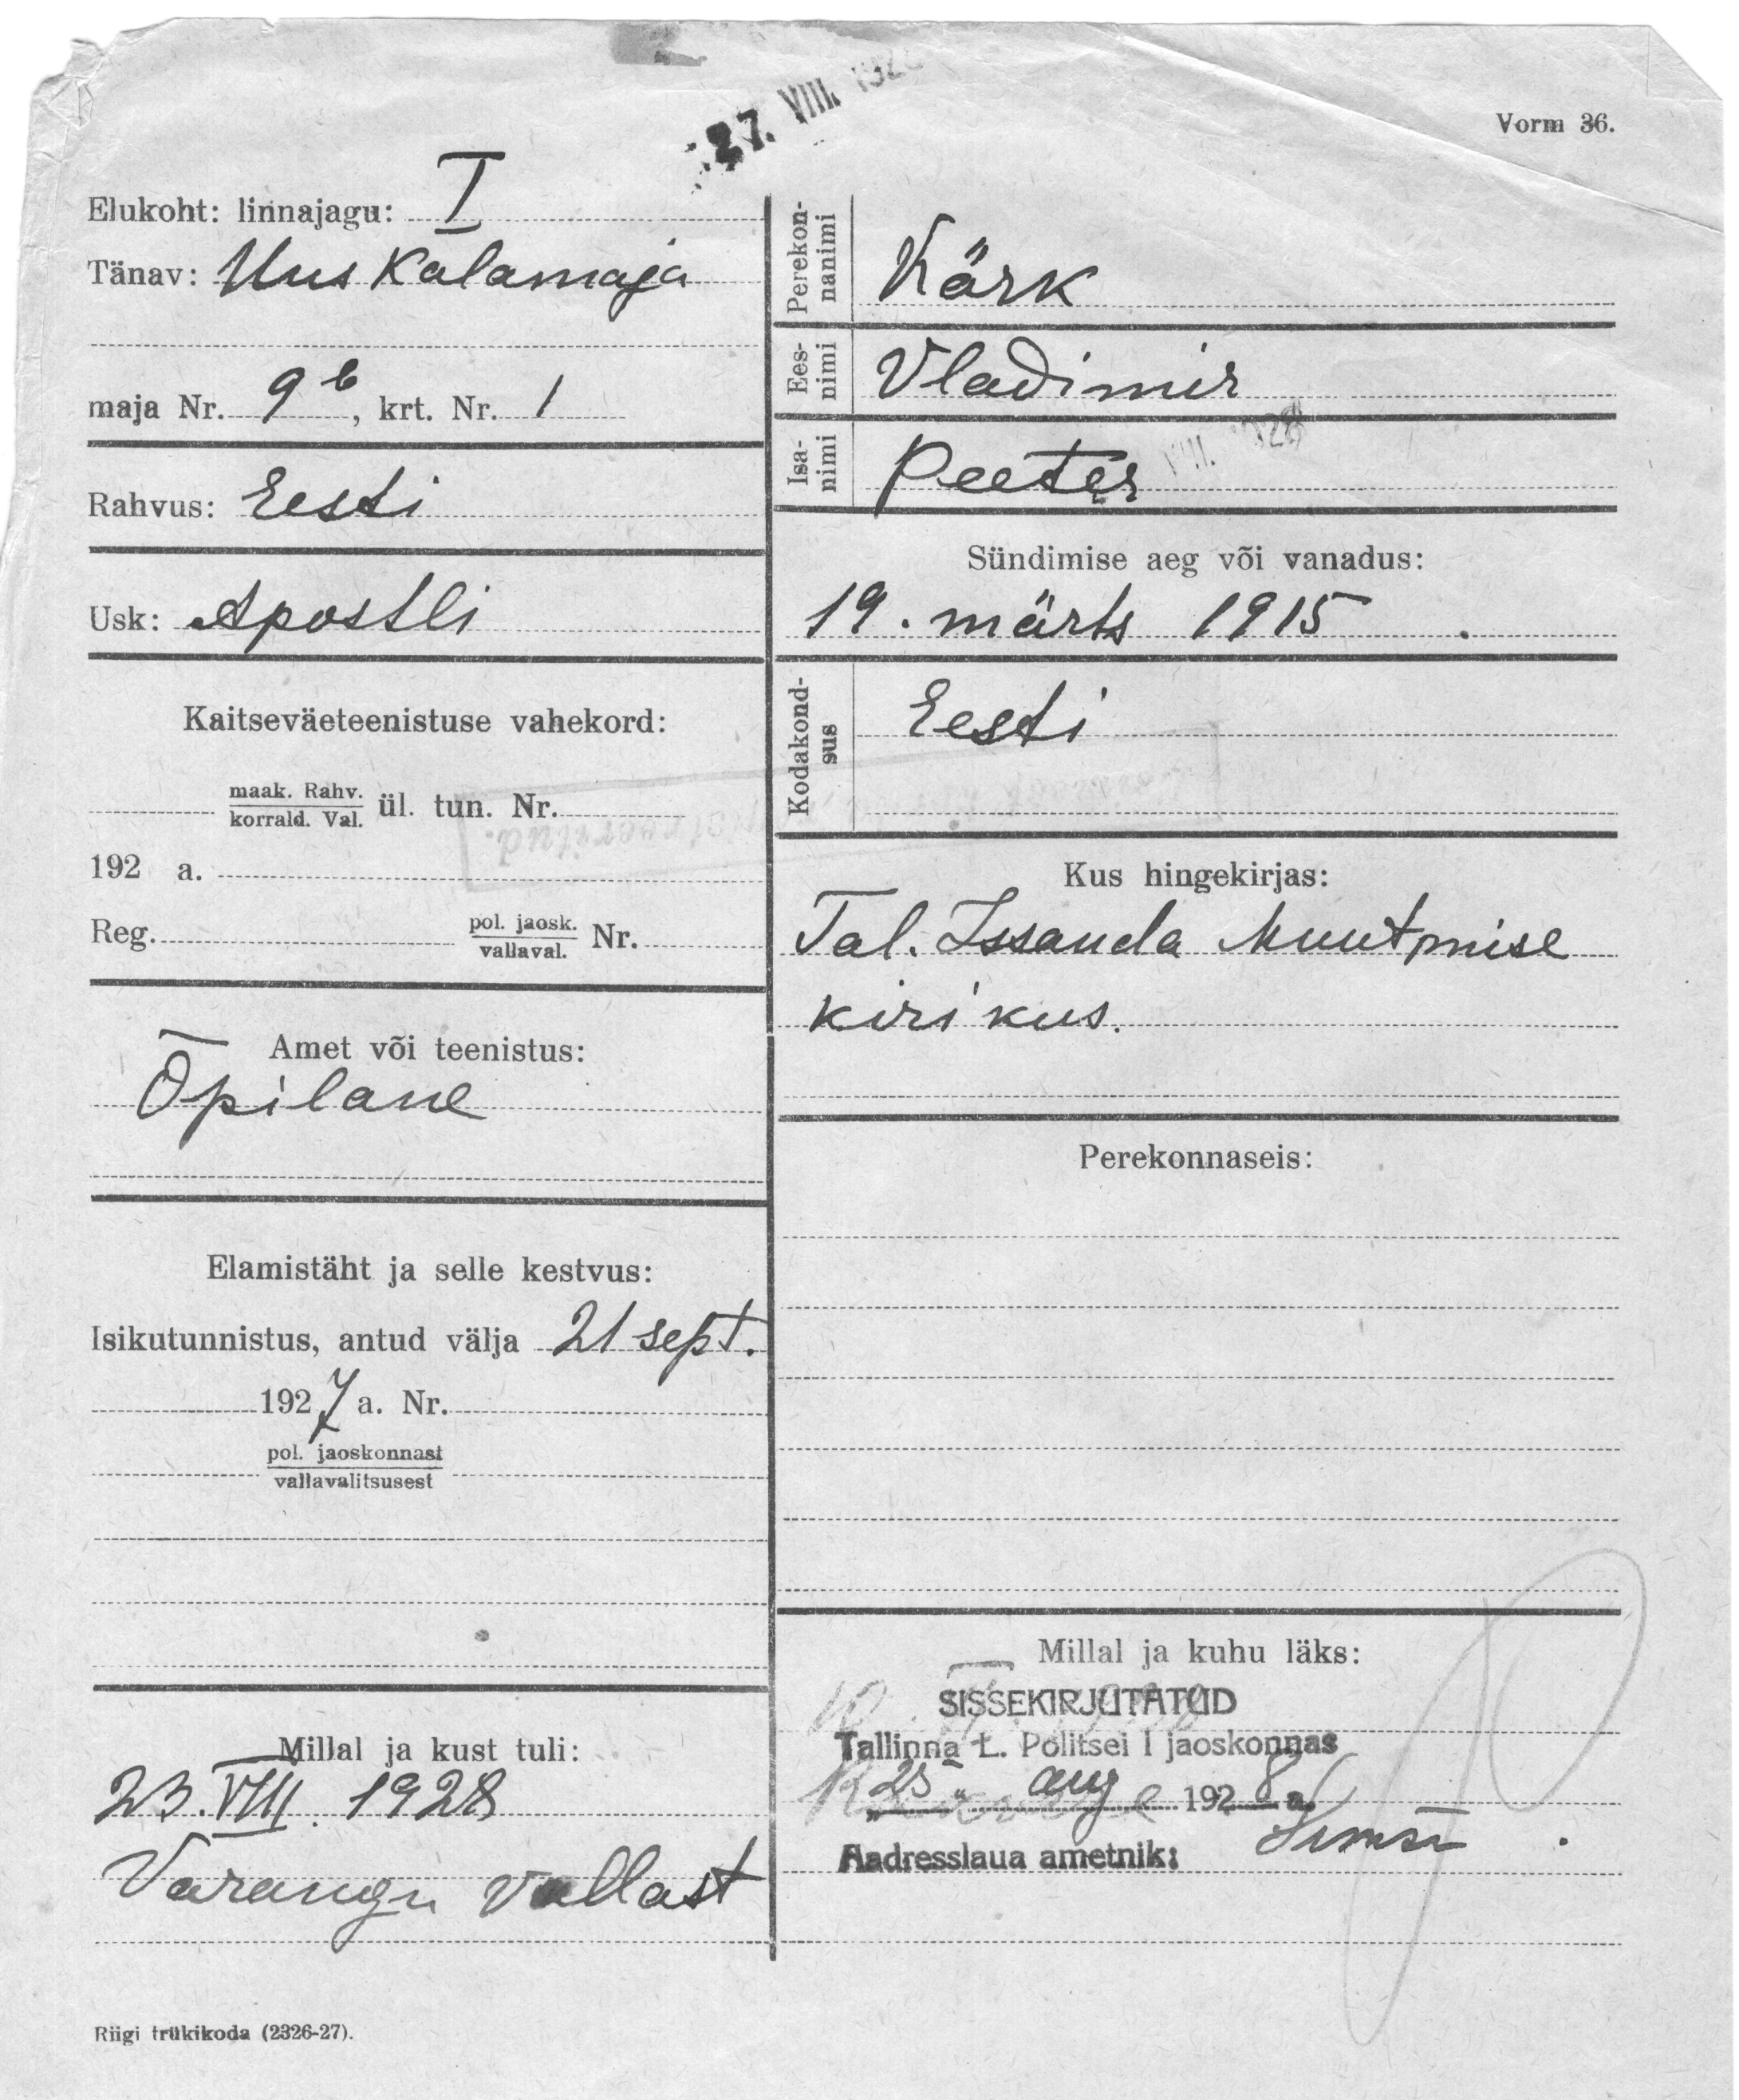 27. VIII. 192
Vorm 36.
Elukoht: linnajagu: I
Tänav: Uus Kalamaja
maja Nr. 9 b, krt. Nr. 1
Rahvus: Eesti
Usk: Apostli
Kaitseväeteenistuse vahekord:
maak. Rahv.
korrald. Val. ül. tun. Nr.
192 a.
Reg. pol. jaosk.
vallaval. Nr.
Amet või teenistus:
Õpilane
Elamistäht ja selle kestvus:
Isikutunnistus, antud välja 21 sept.
1927 a. Nr.
pol. jaoskonnast
vallavalitsusest
Millal ja kust tuli:
23. VIII. 1928
Varangu vallast
Perekon-
nanimi
Kärk
Ees-
nimi
Vladimir
Isa-
nimi
Peeter
VIII. 1928
Sündimise aeg või vanadus:
19. märts 1915.
Kodakond-
sus
Eesti
Kus hingekirjas:
Tal. Issanda Muutmise
kirikus.
Perekonnaseis:
Millal ja kuhu läks:
SISSEKIRJUTATUD
Tallinna L. Politsei I jaoskonnas
„25" aug 1928 a.
Aadresslaua ametnik:
Riigi trükikoda (2326-27).